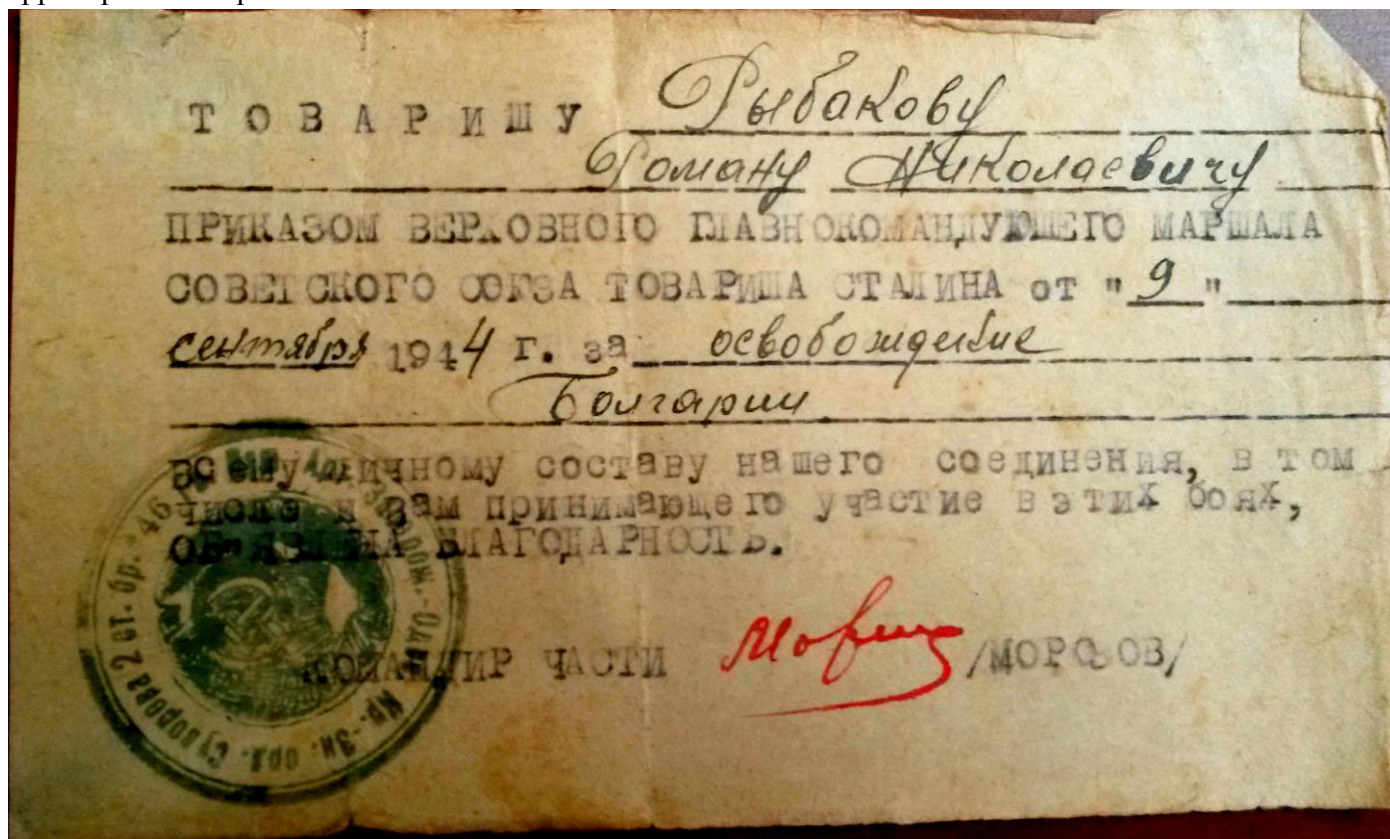 ТОВАРИШУ Рыбакову
Роману Николаевичу
ПРИКАЗОМ ВЕРХОВНОГО ГЛАВНОКОМАНДУЮШЕГО МАРШАЛА
СОВЕТСКОГО СОЮЗА ТОВАРИША СТАЛИНА от "9"
сентября 1944 г. за освобождение
Болгарии
ВСему личному составу нашего соединения, в том
числе и Вам принимающего участие в этих боях,
ОБ"ЯВЛЕНА БЛАГОДАРНОСТЬ.
КОМАНДИР ЧАСТИ /МОРОЗОВ/
Кр.-Зн. орд. Суворова 2 ст. бр. 46